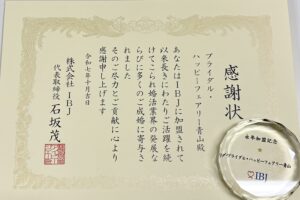 感謝状
ブライダル・
ハッピーフェアリー青山殿
あなたはIBJに加盟されて
以来長きにわたりご活躍を続
けてこられ婚活業界の発展な
らびに多くのご成婚に寄与さ
れました
そのご尽力とご貢献に心より
感謝申し上げます
令和七年十月吉日
株式会社IBJ
代表取締役 石坂茂
永年加盟記念
ブライダル・ハッピーフェアリー青山
IBJ